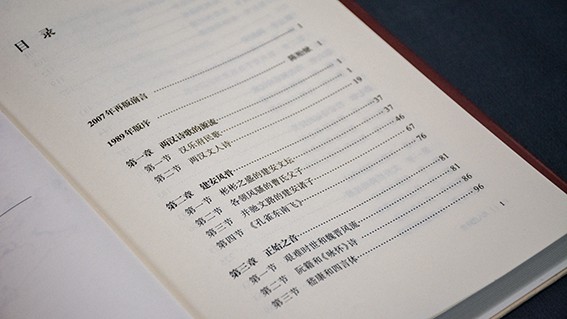 目 录
2007年再版前言 1
1989年版序 陈贻焮 1
第一章 两汉诗歌的源流
第一节 汉乐府民歌 3
第二节 两汉文人诗 19
第二章 建安风骨 37
第一节 彬彬之盛的建安文坛 37
第二节 各领风骚的曹氏父子 46
第三节 并驰文路的建安诸子 67
第四节 《孔雀东南飞》 76
第三章 正始之音
第一节 艰难时世和魏晋风流 81
第二节 阮籍和《咏怀》诗 86
第三节 嵇康和四言体 96
1